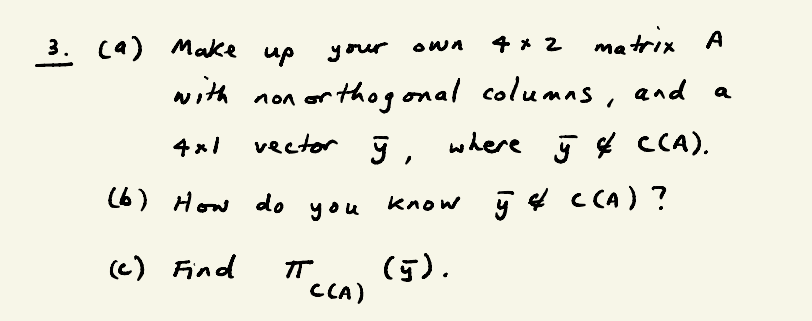 3. (a) Make up your own 4 x 2 matrix A
with nonorthogonal columns, and a
4x1 vector ȳ, where ȳ ∉ C(A).
(b) How do you know ȳ ∉ C(A)?
(c) Find π_C(A) (ȳ).